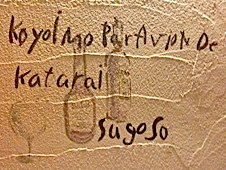 Koyoimo ParAvion De
Katarai
Sugoso